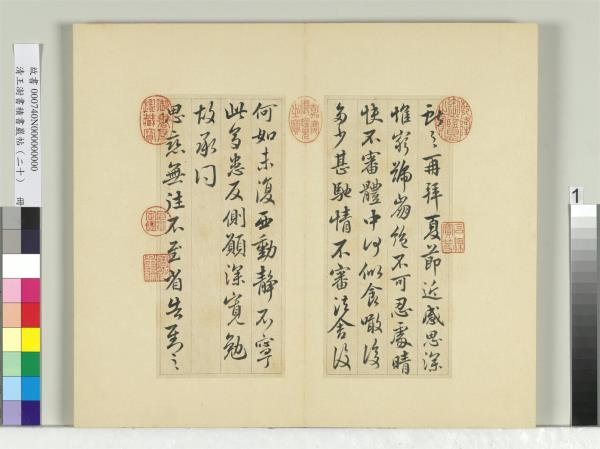 獻之再拜夏節近感思深
惟窮號崩絕不可忍處晴
快不審體中何似食噉復
多少甚馳情不審法舍復
何如未復西動靜不寧
此多患反側願深寬勉
故承問
思戀無往不至省告對之
故書 000740N000000000
清王澍書積書巖帖(二十) 冊
1